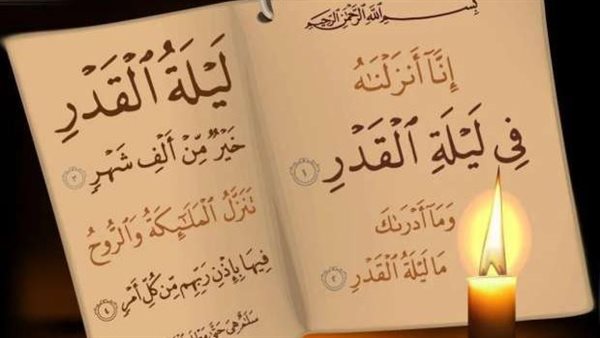 بِسْمِ اللَّهِ الرَّحْمَٰنِ الرَّحِيمِ
إِنَّآ أَنزَلْنَٰهُ
فِي لَيْلَةِ ٱلْقَدْرِ ١
وَمَآ أَدْرَىٰكَ
مَا لَيْلَةُ ٱلْقَدْرِ ٢
لَيْلَةُ ٱلْقَدْرِ
خَيْرٌ مِّنْ أَلْفِ شَهْرٍ ٣
تَنَزَّلُ ٱلْمَلَٰٓئِكَةُ وَٱلرُّوحُ
فِيهَا بِإِذْنِ رَبِّهِم مِّن كُلِّ أَمْرٍ ٤
سَلَٰمٌ هِىَ حَتَّىٰ